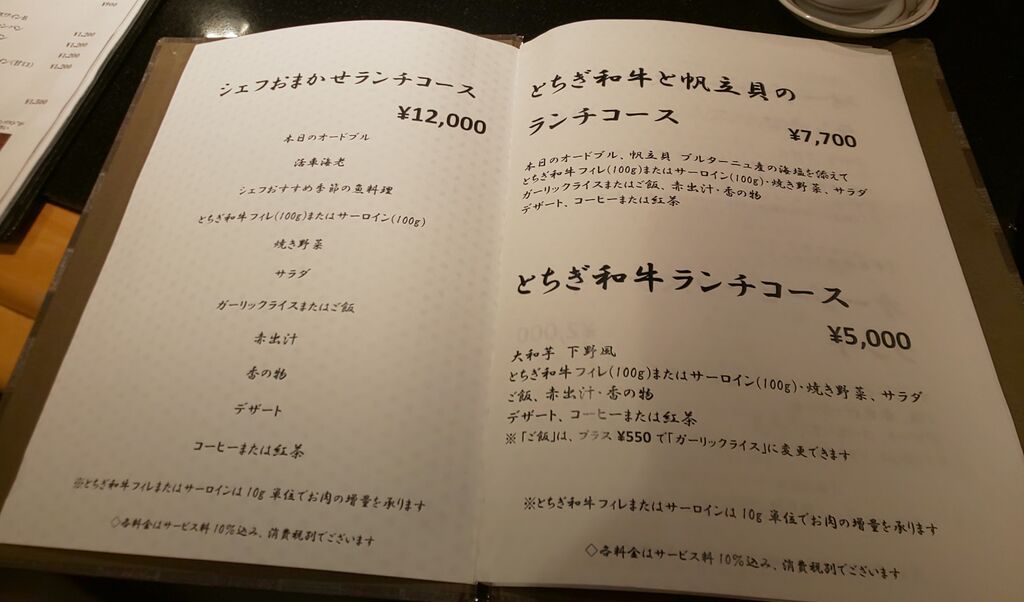 ¥900
¥1,200
¥1,200
¥1,200
¥1,200
¥1,500
シェフおまかせランチコース
¥12,000
本日のオードブル
活車海老
シェフおすすめ季節の魚料理
とちぎ和牛フィレ(100g)またはサーロイン(100g)
焼き野菜
サラダ
ガーリックライスまたはご飯
赤出汁
香の物
デザート
コーヒーまたは紅茶
※とちぎ和牛フィレまたはサーロインは10g 単位でお肉の増量を承ります
◇各料金はサービス料10%込み、消費税別でございます
とちぎ和牛と帆立貝の
ランチコース
¥7,700
本日のオードブル、帆立貝 ブルターニュ産の海塩を添えて
とちぎ和牛フィレ(100g)またはサーロイン(100g)・焼き野菜、サラダ
ガーリックライスまたはご飯、赤出汁・香の物
デザート、コーヒーまたは紅茶
とちぎ和牛ランチコース
¥5,000
大和芋 下野風
とちぎ和牛フィレ(100g)またはサーロイン(100g)・焼き野菜、サラダ
ご飯、赤出汁・香の物
デザート、コーヒーまたは紅茶
※「ご飯」は、プラス ¥550 で「ガーリックライス」に変更できます
※とちぎ和牛フィレまたはサーロインは10g 単位でお肉の増量を承ります
◇各料金はサービス料10%込み、消費税別でございます